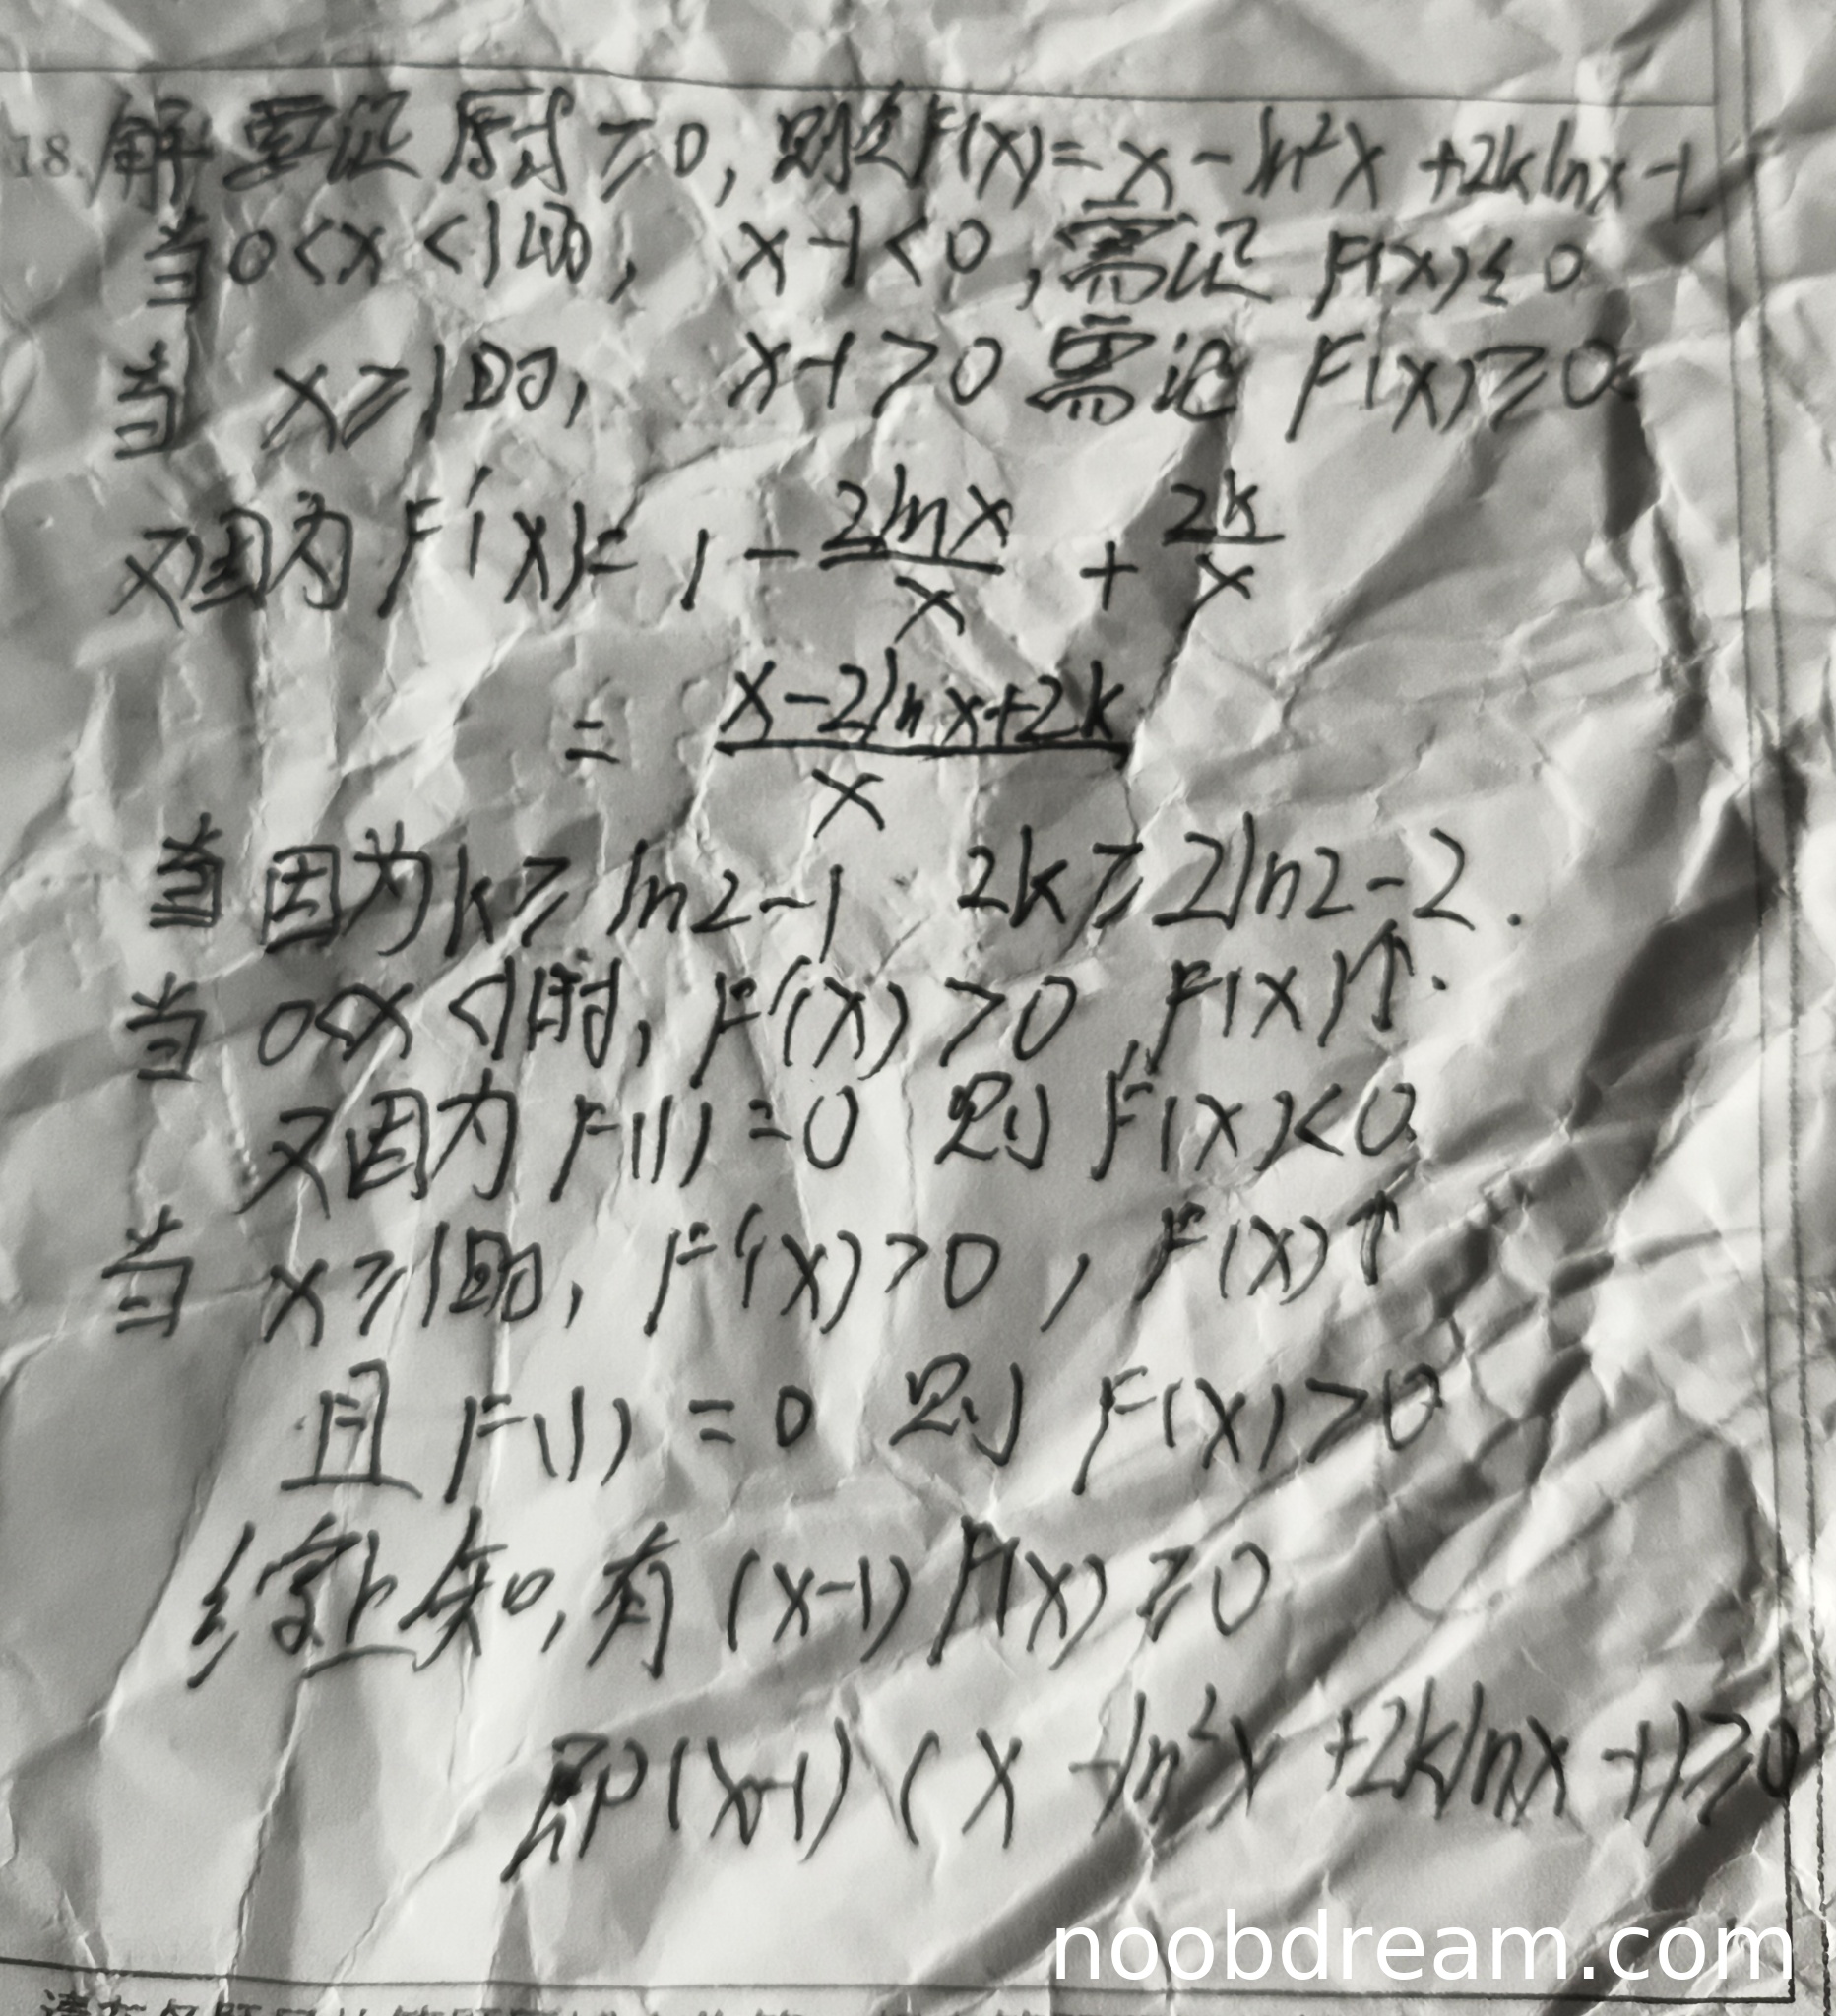 18. 解 要证原式≥0, 则令F(x)= x - ln²x +2klnx -1
当0<x<1时, x-1<0, 需证 F(x)≤0
当 x≥1时, x-1>0 需证 F(x)≥0
又因为 F'(x)= 1 - 2lnx/x + 2k/x
= (x-2lnx+2k)/x
当 因为k≥ln2-1 2k≥2ln2-2.
当 0<x<1时, F'(x)>0, F(x)↑.
又因为 F(1)=0 则 F(x)<0.
当 x≥1时, F'(x)>0, F(x)↑
且 F(1)=0 则 F(x)>0
综上知, 有 (x-1)F(x)≥0
即(x-1)(x-ln²x+2klnx-1)≥0
noobdream.com